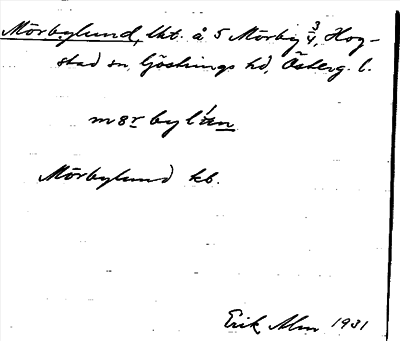 Mörbylund, lht. å 5 Mörby 3/4, Hog-
stad sn, Göstrings hd, Österg. l.
Mörbylund kb.
Erik Alm 1931